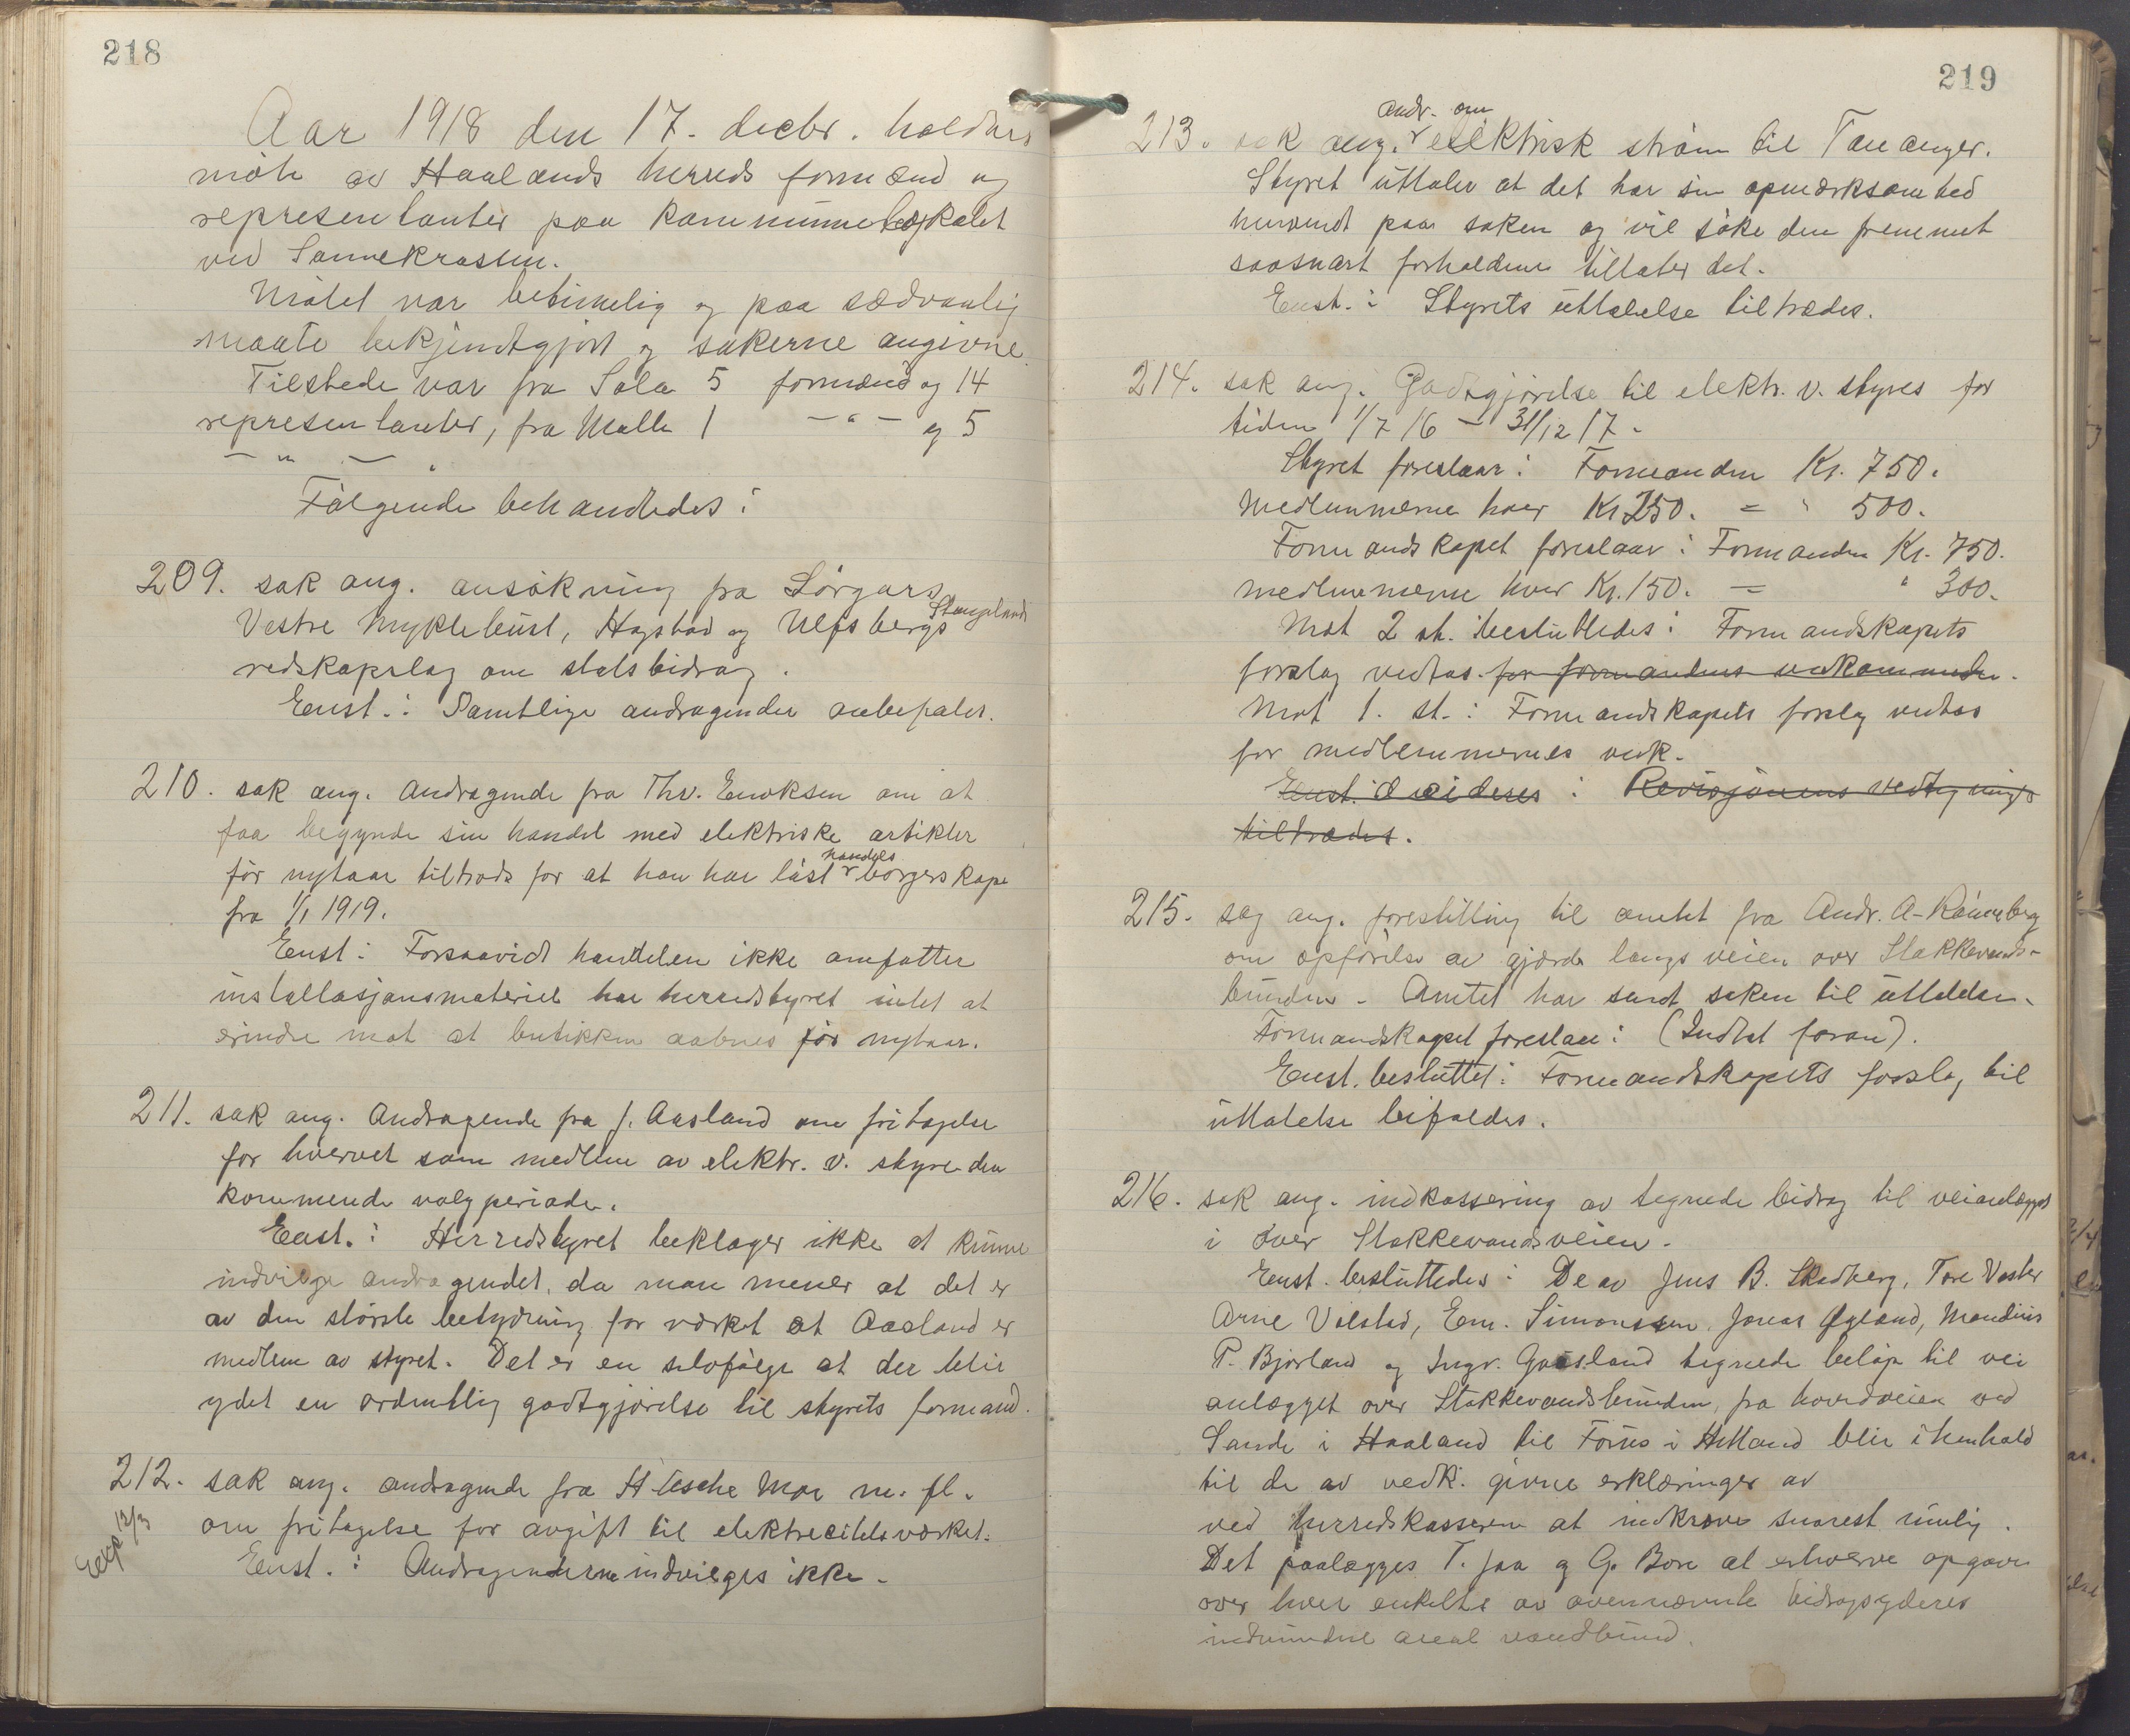 218
Aar 1918 den 17. decbr. holdtes
möte av Haalands herreds formænd og
representanter paa kommunelokalet
ved Sømmekrossen.
Mötet var betimelig og paa sædvanlig
maate bekjendtgjort og sakerne angivne.
Tilstede var fra Sola 5 formænd og 14
representanter, fra Malle 1 — " — og 5
— " —
Følgende behandledes:
209. sak ang. ansökning fra Sörgars,
Stangelands
Vestre Myklebust, Hogstad og Ulfsbergs
redskapslag om statsbidrag.
Enst.: Samtlige andragender anbefales.
210. sak ang. Andragende fra Thv. Enoksen om at
faa begynde sin handel med elektriske artikler
för nytaar tiltrods for at han har löst handels
borgerskape
fra 1/1 1919.
Enst: Forsaavidt handelen ikke omfatter
installasjonsmateriel har herredstyret intet at
erindre mot at butikken aabnes för nytaar.
211. sak ang. Andragende fra J. Aasland om fritagelse
for hvervet som medlem av elektr. v. styre den
kommende valgperiode.
Enst.: Herredstyret beklager ikke at kunne
indvilge andragendet, da man mener at det er
av den störste betydning for verket at Aasland er
medlem av styret. Det er en selvfölge at der blir
ydet en ordentlig godtgjörelse til styrets formand.
212. sak ang. andragende fra H Tesche Moe m. fl.
om fritagelse for avgift til elektrecitetsverket.
Exp 12/3
Enst.: Andragenderne indvilges ikke.
219
andr. om
213. sak ang. elektrisk ström til Tananger.
Styret uttaler at det har sin opmerksomhed
henvendt paa saken og vil söke den fremmet
saasnart forholdene tillater det.
Enst.: Styrets uttalelse tiltrædes.
214. sak ang. Godtgjörelse til elektr. v. styres for
tiden 1/7 16 – 31/12 17.
Styret foreslaar: Formanden Kr. 750.
Medlemmerne hver Kr 250. = " 500.
Formandskapet foreslaar: Formanden Kr. 750.
medlemmerne hver Kr. 150. = " 300.
Mot 2 st. besluttedes: Formandskapets
forslag vedtas for formandens vedkommende.
Mot 1. st.: Formandskapets forslag vedtas
for medlemmernes vedk.
Enst. decideres: Revisjonens vedtegnings
tiltrædes.
215. sag ang. forestilling til amtet fra Andr. A. Rönneberg
om opförelse av gjærde langs veien over Stokkevands-
bunden. Amtet har sendt saken til uttalelse.
Formandskapet foreslaar: (Indtat foran).
Enst. besluttet: Formandskapets forslag til
uttalelse bifaldes.
216. sak ang. indkassering av tegnede bidrag til veianlægget
i over Stokkevandsveien.
Enst. besluttedes: De av Jens B. Skadberg, Tore Vaster
Arne Volstad, Em. Simonsen, Jonas Øgland, Maudius
P. Bjorland og Ingv. Gaasland tegnede belöp til vei
anlægget over Stokkevandsbunden, fra hovedveien ved
Sande i Haaland til Forus i Hetland blir i henhold
til de av vedk. givne erklæringer av
ved herredskasseren at indkræve snarest mulig.
Det paalægges T. Joa og G. Bore at erhverve opgave
over hver enkelte av ovennævnte bidragsyderes
indvundne areal vandbund.